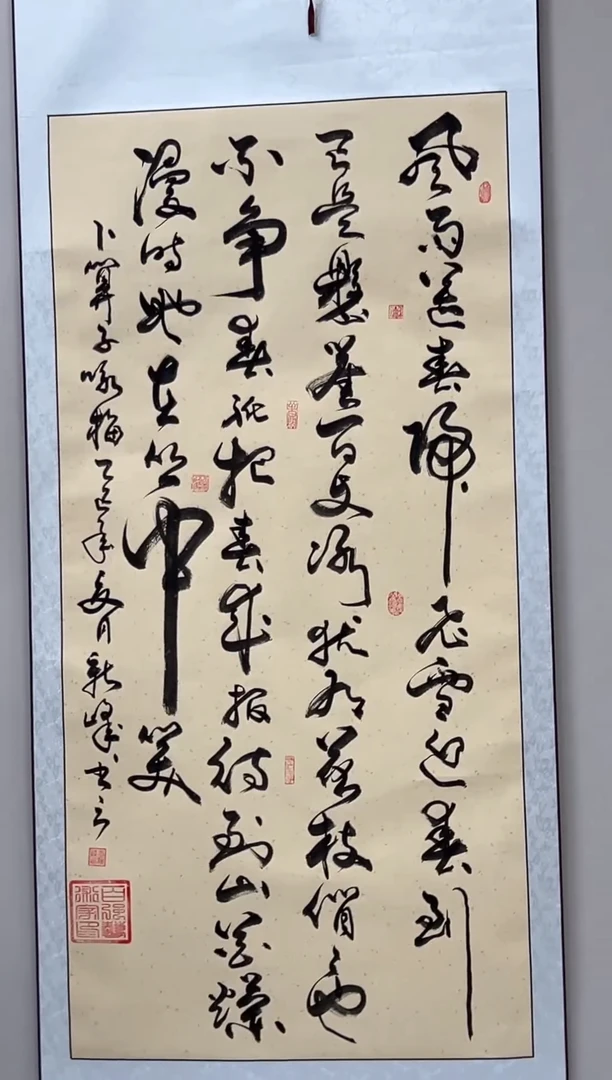 风雨送春歸飞雪迎春到
已是懸崖百丈冰犹有花枝俏也
不争春祇把春来报待到山花爛
漫时她在丛中笑
卜算子咏梅乙巳年夏月新峰书之